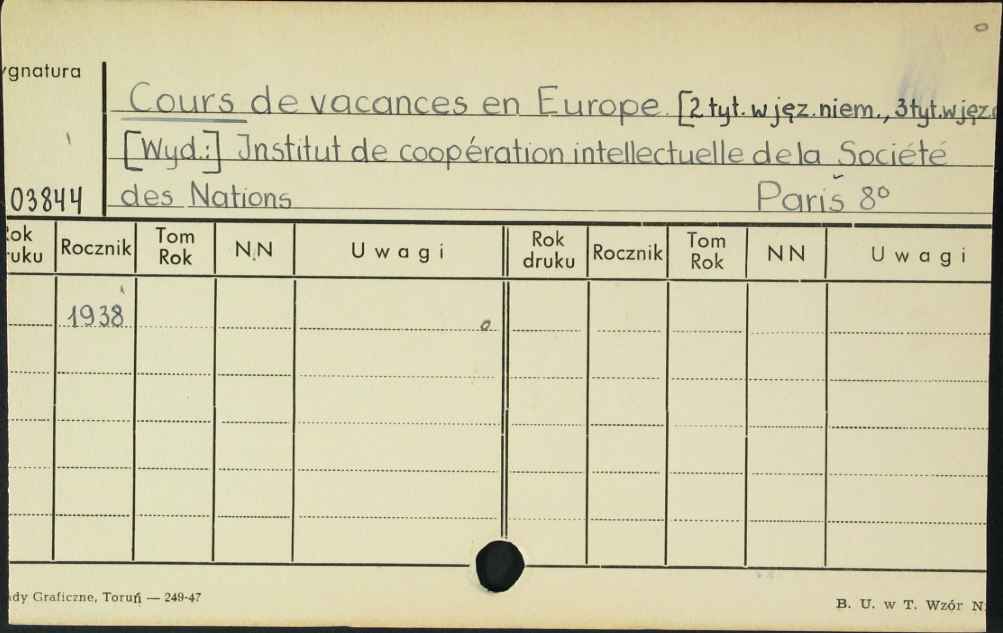 ygnatura
Cours de vacances en Europe. [2 tyt. w jęz. niem., 3 tyt. w jęz.
[Wyd.:] Institut de coopération intellectuelle de la Société
03844 des Nations Paris 8°
Rok druku Rocznik Tom Rok NN Uwagi Rok druku Rocznik Tom Rok NN Uwagi
1938
dy Graficzne, Toruń — 249-47
B. U. w T. Wzór N